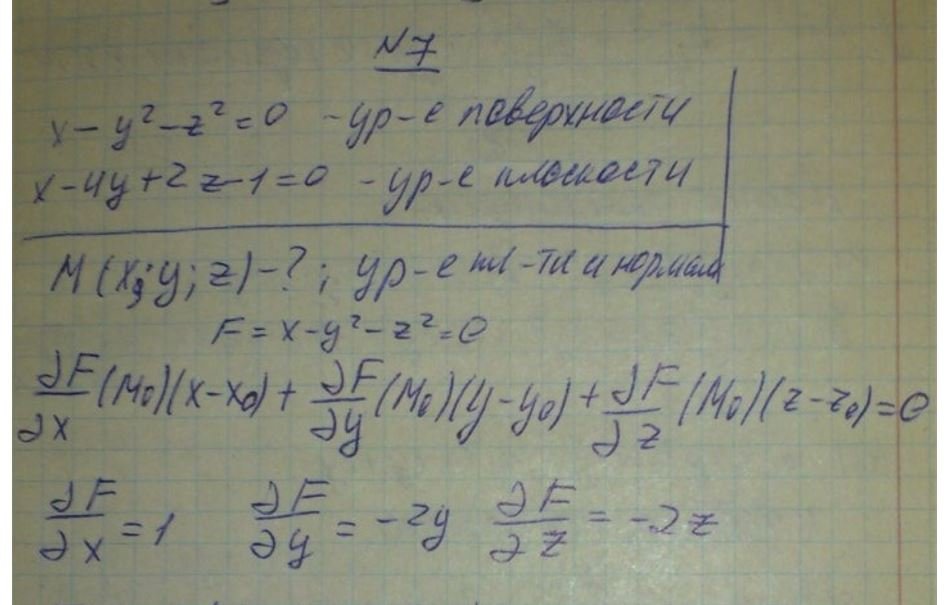 N7
x - y² - z² = 0 - ур-е поверхности
x - 4y + 2z - 1 = 0 - ур-е плоскости
M(x; y; z) - ?; ур-е пл-ти и нормали
F = x - y² - z² = 0
∂F/∂x (M₀)(x - x₀) + ∂F/∂y (M₀)(y - y₀) + ∂F/∂z (M₀)(z - z₀) = 0
∂F/∂x = 1 ∂F/∂y = -2y ∂F/∂z = -2z